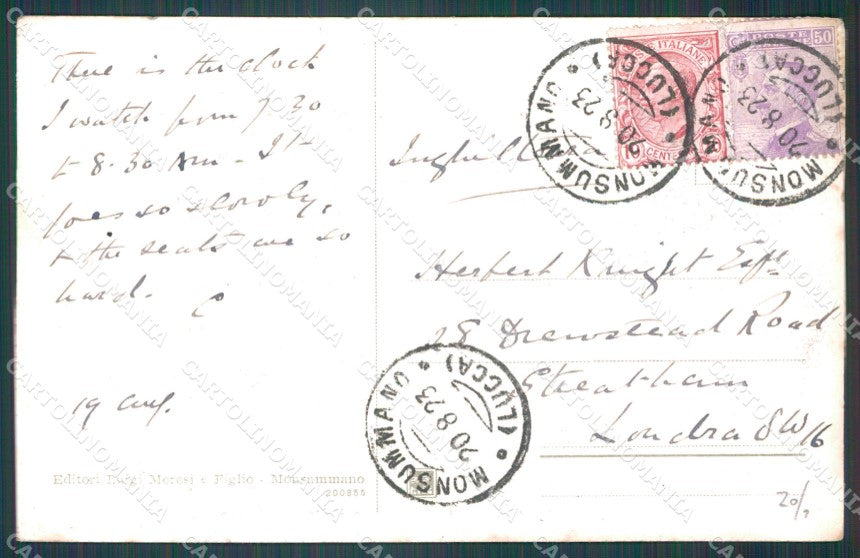 There is the clock
I watch from 7.30
to 8.30 AM - It
goes so slowly,
& the seats are so
hard.
C
19 Aug.
Editori Luigi Moresi e Figlio - Monsummano
200855
Inghilterra
Herbert Knight Esqre
28 Drewstead Road
Streatham
Londra SW 16
20/
POSTE ITALIANE
10 CENT
POSTE
50
MONSUMMANO (LUCCA)
20 8 23
MONSUMMANO (LUCCA)
20 8 23
MONSUMMANO (LUCCA)
20 8 23
CARTOLINOMANIA